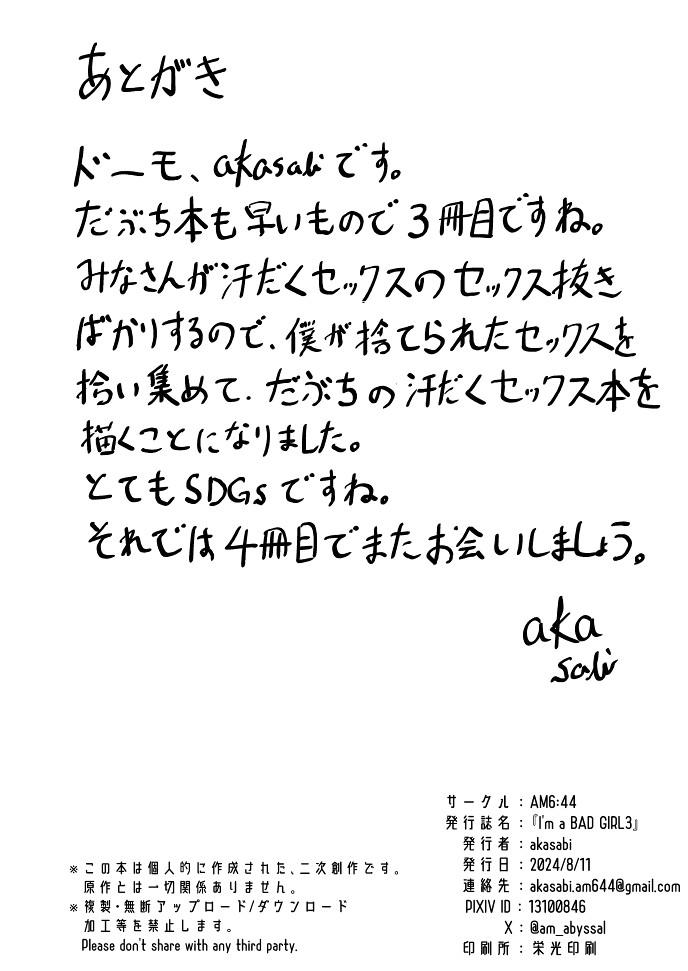 あとがき
ドーモ、akasabiです。
だぶち本も早いもので3冊目ですね。
みなさんが汗だくセックスのセックス抜き
ばかりするので、僕が捨てられたセックスを
拾い集めて、だぶちの汗だくセックス本を
描くことになりました。
とてもSDGsですね。
それでは4冊目でまたお会いしましょう。
aka
sabi
サークル：AM6:44
発行誌名：『I'm a BAD GIRL3』
発行者：akasabi
発行日：2024/8/11
連絡先：akasabi.am644@gmail.com
PIXIV ID：13100846
X：@am_abyssal
印刷所：栄光印刷
※この本は個人的に作成された、二次創作です。
原作とは一切関係ありません。
※複製・無断アップロード/ダウンロード
加工等を禁止します。
Please don't share with any third party.